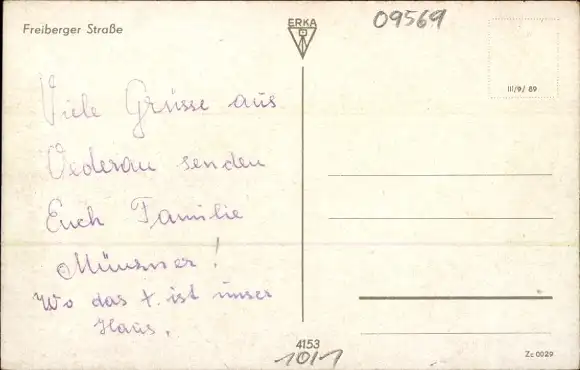 Freiberger Straße
ERKA
09569
III/9/89
Viele Grüsse aus
Oederau senden
Euch Familie
Münzner!
Wo das +. ist unser
Haus.
4153
101-1
Zc 0029